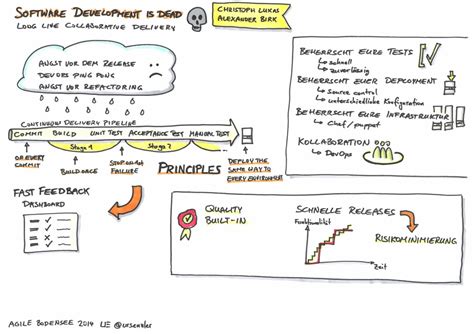 SOFTWARE DEVELOPMENT IS DEAD
LONG LIVE COLLABORATIVE DELIVERY
CHRISTOPH LUKAS
ALEXANDER BIRK
ANGST VOR DEM RELEASE
DEVOPS PING PONG
ANGST VOR REFACTORING
CONTINUOUS DELIVERY PIPELINE
COMMIT BUILD UNIT TEST ACCEPTANCE TEST MANUAL TEST
Stage 1 Stage 2
ON EVERY
COMMIT
BUILD ONCE
STOP ON 1st
FAILURE
DEPLOY THE
SAME WAY TO
EVERY ENVIRONMENT
PRINCIPLES
FAST FEEDBACK
DASHBOARD
BEHERRSCHT EURE TESTS
schnell
zuverlässig
BEHERRSCHT EUER DEPLOYMENT
Source control
unterschiedliche Konfiguration
BEHERRSCHT EURE INFRASTRUKTUR
Chef / puppet
KOLLABORATION
DevOps
QUALITY
BUILT-IN
SCHNELLE RELEASES
Funktionalität
Zeit
RISIKOMINIMIERUNG
AGILE BODENSEE 2014